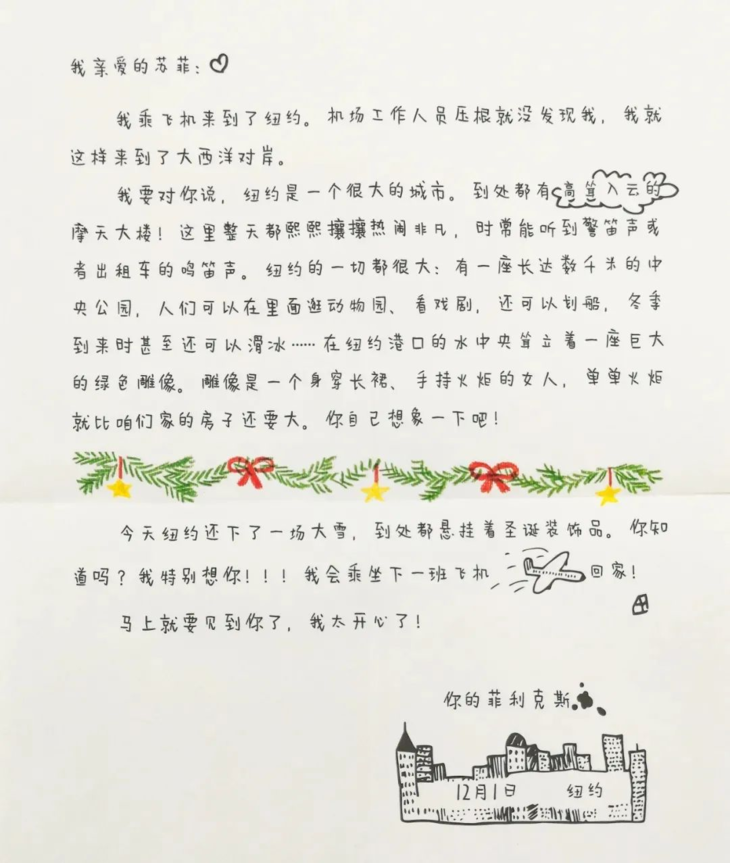 我亲爱的苏菲：
我乘飞机来到了纽约。机场工作人员压根就没发现我，我就
这样来到了大西洋对岸。
我要对你说，纽约是一个很大的城市。到处都有高耸入云的
摩天大楼！这里整天都熙熙攘攘热闹非凡，时常能听到警笛声或
者出租车的鸣笛声。纽约的一切都很大：有一座长达数千米的中
央公园，人们可以在里面逛动物园、看戏剧，还可以划船，冬季
到来时甚至还可以滑冰……在纽约港口的水中央耸立着一座巨大
的绿色雕像。雕像是一个身穿长裙、手持火炬的女人，单单火炬
就比咱们家的房子还要大。你自己想象一下吧！
今天纽约还下了一场大雪，到处都悬挂着圣诞装饰品。你知
道吗？我特别想你！！！我会乘坐下一班飞机回家！
马上就要见到你了，我太开心了！
你的菲利克斯
12月1日 纽约